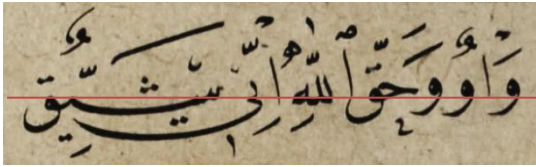 وَاوُ وَحَقِّ اللّٰهِ اِنِّي شَيِّقٌ